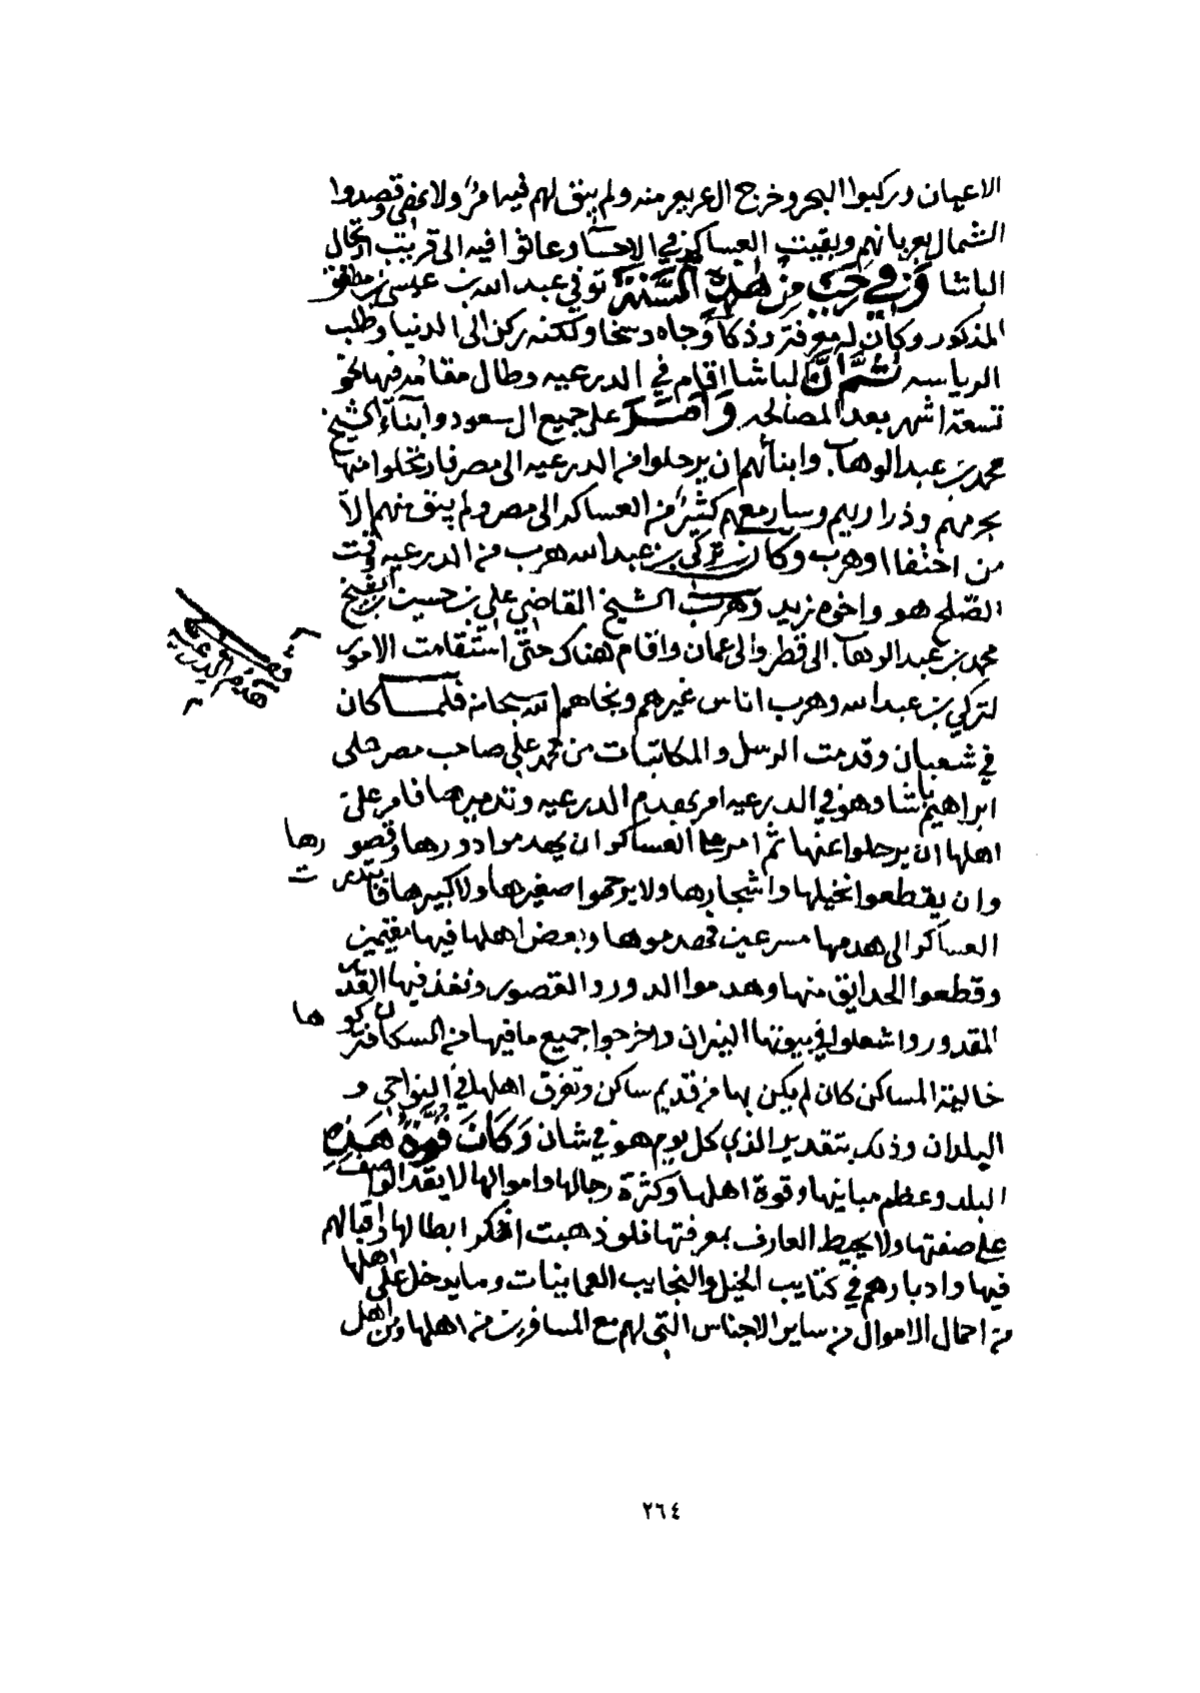 الاعيان وركبوا البحر وخرج ال عريعر منه ولم يبق لهم فيها امر ولا نهي وقصدوا
الشمال بعربانهم وبقيت العساكر في الاحسا وعاثوا فيه الى قريب ارتحال
الباشا وفي رجب من هذه السنة توفي عبد الله بن عيسى بن مطلق
المذكور وكان له معرفة وذكآ وجاه وسخا ولكنه ركن الى الدنيا وطلب
الرياسه ثم ان الباشا اقام في الدرعيه وطال مقامه فيها نحو
تسعة اشهر بعد المصالحه وامر على جميع ال سعود وابنآء الشيخ
محمد بن عبد الوهاب وابنائهم ان يرحلوا من الدرعيه الى مصر فارتحلوا منها
بحرمهم وذراريهم وسار معهم كثير من العساكر الى مصر ولم يبق منهم الآ
من اختفا او هرب وكان تركي بن عبد الله هرب من الدرعيه وقت
الصلح هو واخوه زيد وهرب الشيخ القاضي علي بن حسين بن الشيخ
محمد بن عبد الوهاب الى قطر والى عمان واقام هناك حتى استقامت الامور
لتركي بن عبد الله وهرب اناس غيرهم ونجاهم الله سبحانه فلما كان
قف على هدم الدرعية
في شعبان وقدمت الرسل والمكاتبات من محمد علي صاحب مصر على
ابراهيم باشا وهو في الدرعيه امره بهدم الدرعيه وتدميرها فامر على
اهلها ان يرحلوا عنها ثم امر العساكر ان يهدموا دورها وقصورها
وان يقطعوا نخيلها واشجارها ولا يرحموا صغيرها ولا كبيرها فابتدرت
العساكر الى هدمها مسرعين فهدموها وبعض اهلها فيها مقيمين
وقطعوا الحدايق منها وهدموا الدور والقصور ونفذ فيها القدر
المقدور واشعلوا في بيوتها النيران واخرجوا جميع ما فيها من السكان فتركوها
خالية المساكن كان لم يكن بها من قديم ساكن وتفرق اهلها في النواحي و
البلدان وذلك بتقدير الذي كل يوم هو في شان وكانت قوة هذه
البلد وعظم مبانيها وقوة اهلها وكثرة رجالها واموالها لا يقدر الواصف
على صفتها ولا يحيط العارف بمعرفتها فلو ذهبت اذكر ابطالها واقبالهم
فيها وادبارهم في كتايب الخيل والنجايب العمانيات وما يدخل على اهلها
من احمال الاموال من ساير الاجناس التي لهم مع المسافرين من اهلها ومن اهل
٢٦٤